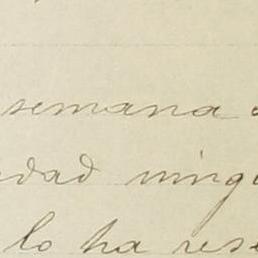 semana
dad ning
lo ha res